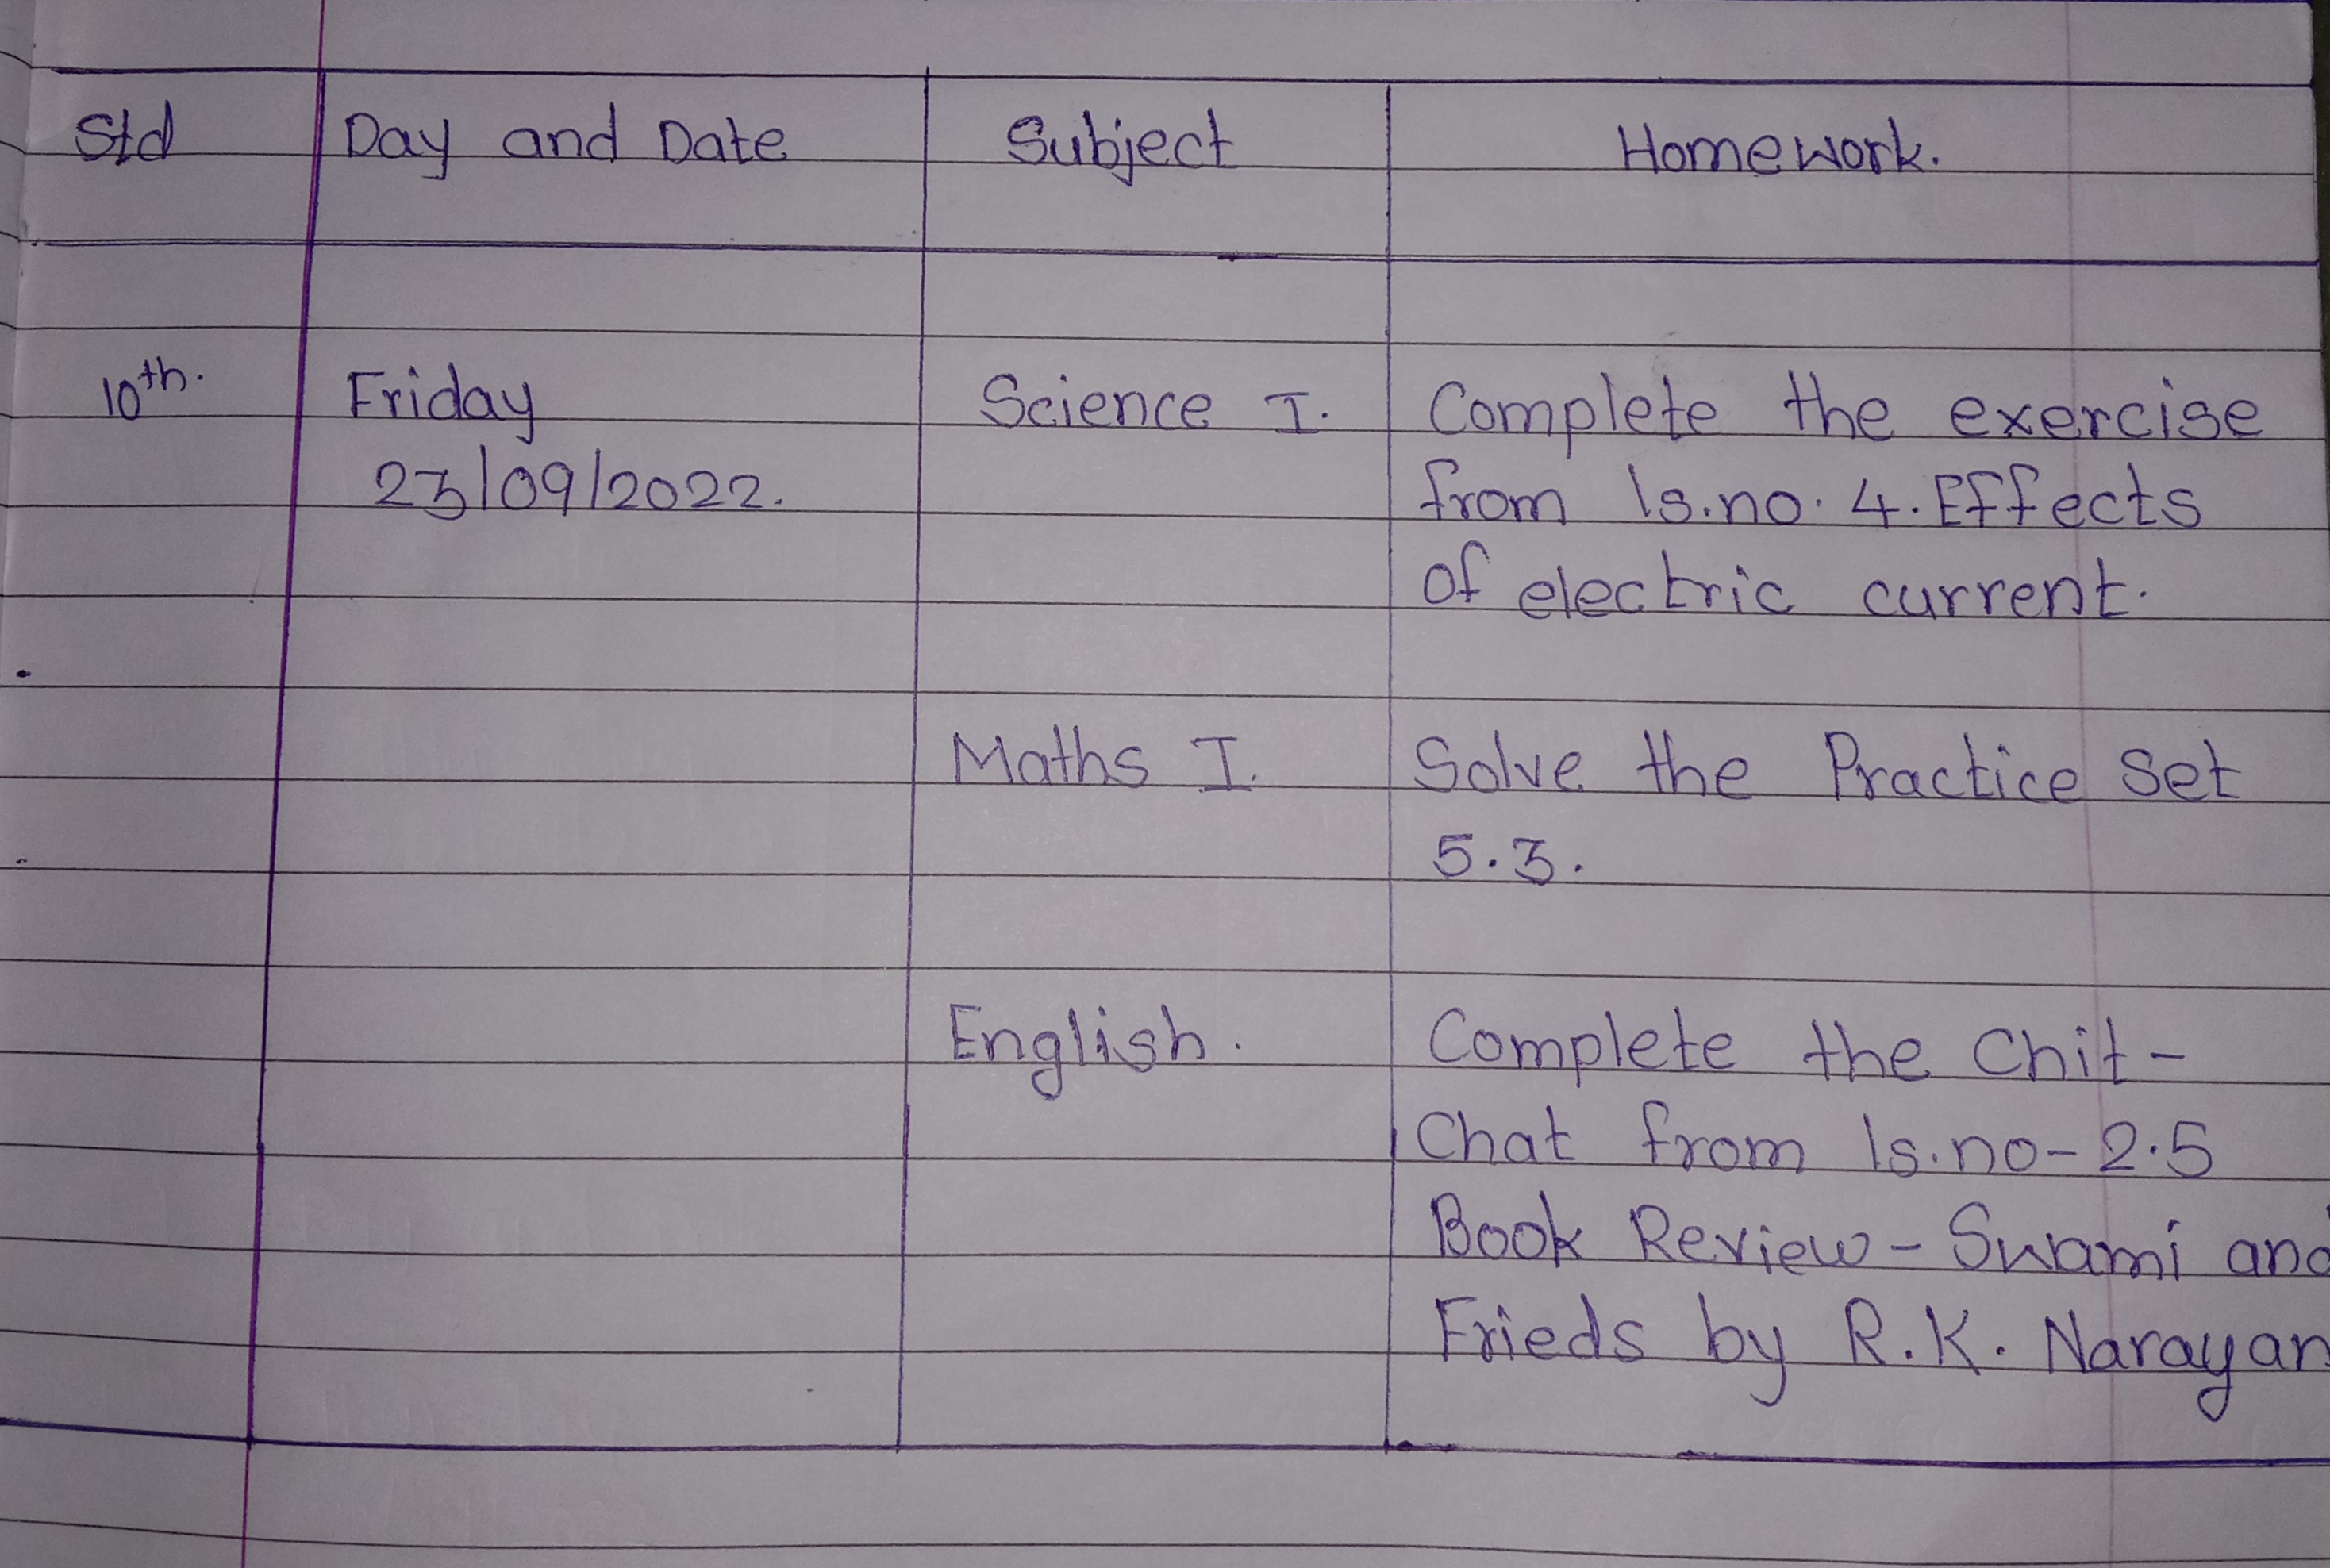 Std Day and Date Subject Homework.
10th. Friday Science I. Complete the exercise
23/09/2022. from ls.no. 4. Effects
of electric current.
Maths I. Solve the Practice Set
5.3.
English. Complete the Chit-
Chat from ls.no-2.5
Book Review - Swami and
Frieds by R.K. Narayan